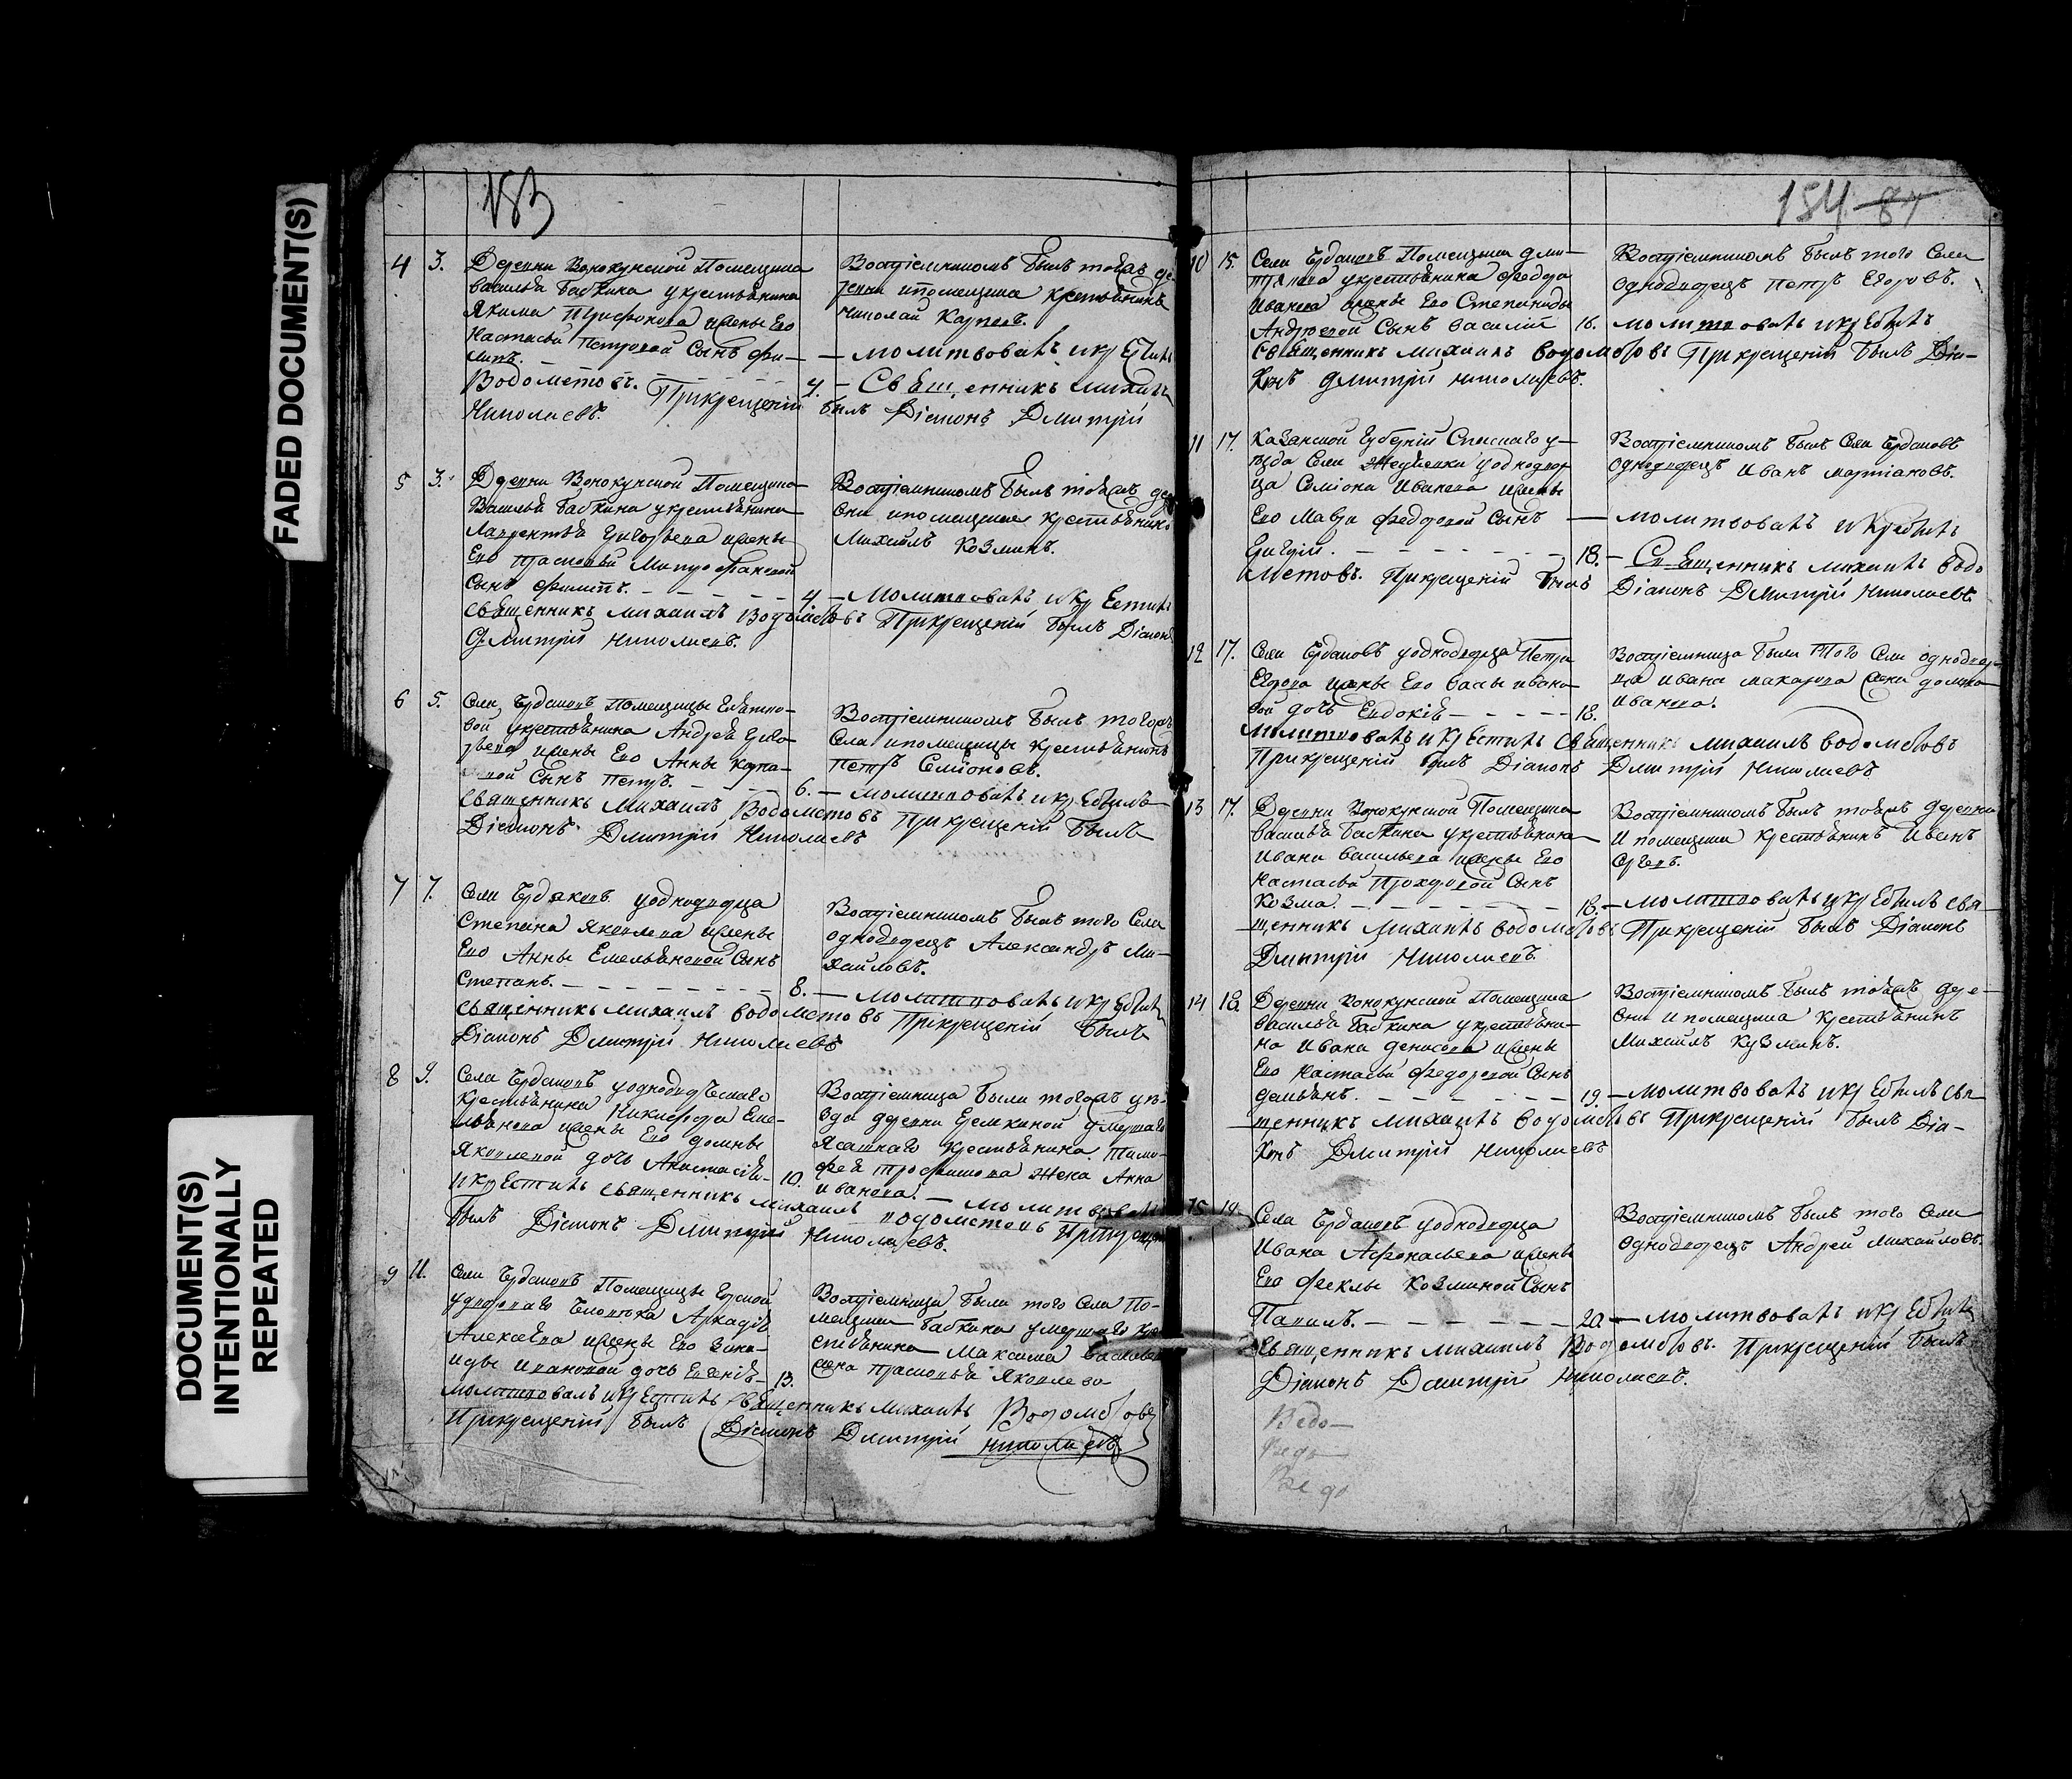 FADED DOCUMENT(S)
DOCUMENT(S)
INTENTIONALLY
REPEATED
183
4 3. Деревни Вонокунской Помещика
василья бабкина укрестьянина
Якима Трифонова ижены Его
Настасьи Петровой Сынъ Фи-
липъ. 4.
Воспріемникомъ былъ тойжъ де
ревни ипомещика крестьянинъ
николай Карповъ.
— молитвовалъ икрестилъ
— Священникъ михаилъ
Водометовъ. Прикрещеніи былъ Діаконъ Дмитрій
Николаевъ.
5 3. Деревни Вонокунской Помещика
Василья бабкина укрестьянина
Лаврентья Григорьева ижены
Его Прасковьи Митрофановой
Сынъ Филиппъ. 4
Воспріемникомъ былъ тойжъ дер
вни ипомещика крестьянинъ
Михаилъ Козминъ.
— Молитвовалъ икрестилъ
священникъ михаилъ Водометовъ Прикрещеніи былъ Діаконъ
Дмитрій Николаевъ.
6 5. укрестьянина Андрея Григо-
рьева ижены Его Анны
Сынъ Петръ. 6.
Воспріемникомъ былъ тогожъ
Села ипомещицы крестьянинъ
Петръ Семіоновъ.
— молитвовалъ икрестилъ
священникъ Михаилъ Водометовъ Прикрещеніи былъ
Діаконъ Дмитрій Николаевъ
7 7. уоднодворца
Степана Яковлева ижены
Его Анны Емельяновой Сынъ
Степанъ. 8.
Воспріемникомъ былъ того Села
однодворецъ Александръ Ми-
хаиловъ.
— молитвовалъ икрестилъ
священникъ михаилъ водометовъ Прикрещеніи былъ
Діаконъ Дмитрій Николаевъ
8 9. крестьянина Никифора Еме-
льянова ижены Его домны
Яковлевой дочь Анастасія 10.
Воспріемница была тогожъ уез-
да деревни умершаго
Ясашнаго крестьянина Тимо-
фея трофимова Жена Анна
иванова. — молитвовалъ
икрестилъ священникъ михаилъ водометовъ Прикрещеніи
былъ Діаконъ Дмитрій Николаевъ.
9 11. Алексеева ижены Его Зина-
иды ивановой дочь Евгенія 13.
Воспріемница была того Села По-
мещика бабкина умершаго кре
стьянина Максима Васильева
жена прасковья Яковлева
молитвовалъ икрестилъ священникъ михаилъ Водометовъ
Прикрещеніи былъ Діаконъ Дмитрій николаевъ
184 87
10 15. укрестьянина Федора
Иванова ижены Его Степаниды
Андреевой Сынъ василій 16.
Воспріемникомъ былъ того Села
однодворецъ Петръ Егоровъ.
молитвовалъ икрестилъ
священникъ михаилъ водометовъ Прикрещеніи былъ Діа-
конъ дмитрій николаевъ.
11 17. Казанской Губерніи Спаскаго у-
езда Села уоднодвор
ца Семіона Иванова ижены
Его Мавры Федоровой Сынъ
Григорій. 18.
однодворецъ Иванъ мартіановъ.
— молитвовалъ икрестилъ
— Священникъ михаилъ водо
метовъ. Прикрещеніи былъ Діаконъ Дмитрій Николаевъ
12 17. уоднодворца Петра
Егорова ижены Его ивано-
вой дочь Евдокія 18.
Воспріемница была того Села однодвор-
ца ивана макарова
иванова.
молитвовалъ икрестилъ священникъ михаилъ водометовъ
Прикрещеніи былъ Діаконъ Дмитрій Николаевъ.
13 17. Деревни Вонокунской Помещика
василья бабкина укрестьянина
ивана васильева ижены Его
Настасьи Прохоровой Сынъ
Козма. 18.
Воспріемникомъ былъ тойжъ деревни
и помещика крестьянинъ Иванъ
— молитвовалъ икрестилъ свя-
щенникъ михаилъ водометовъ Прикрещеніи былъ Діаконъ
Дмитрій Николаевъ.
14 18. Деревни Вонокунской Помещика
василья бабкина укрестьяни-
на ивана денисова ижены
Его Настасьи Федоровой Сынъ
демьянъ. 19.
Воспріемникомъ былъ тойжъ дере-
вни и помещика крестьянинъ
Михаилъ Кузминъ.
— молитвовалъ икрестилъ свя-
щенникъ михаилъ водометовъ Прикрещеніи былъ Діа-
конъ Дмитрій Николаевъ
15 19. уоднодворца
Ивана Афонасьева ижены
Его Феклы Козминой Сынъ
Павилъ. 20.
Воспріемникомъ былъ того Села
однодворецъ Андрей михайловъ.
— молитвовалъ икрестилъ
священникъ михаилъ Водометовъ. Прикрещеніи былъ
Діаконъ Дмитрій Николаевъ.
Ведо